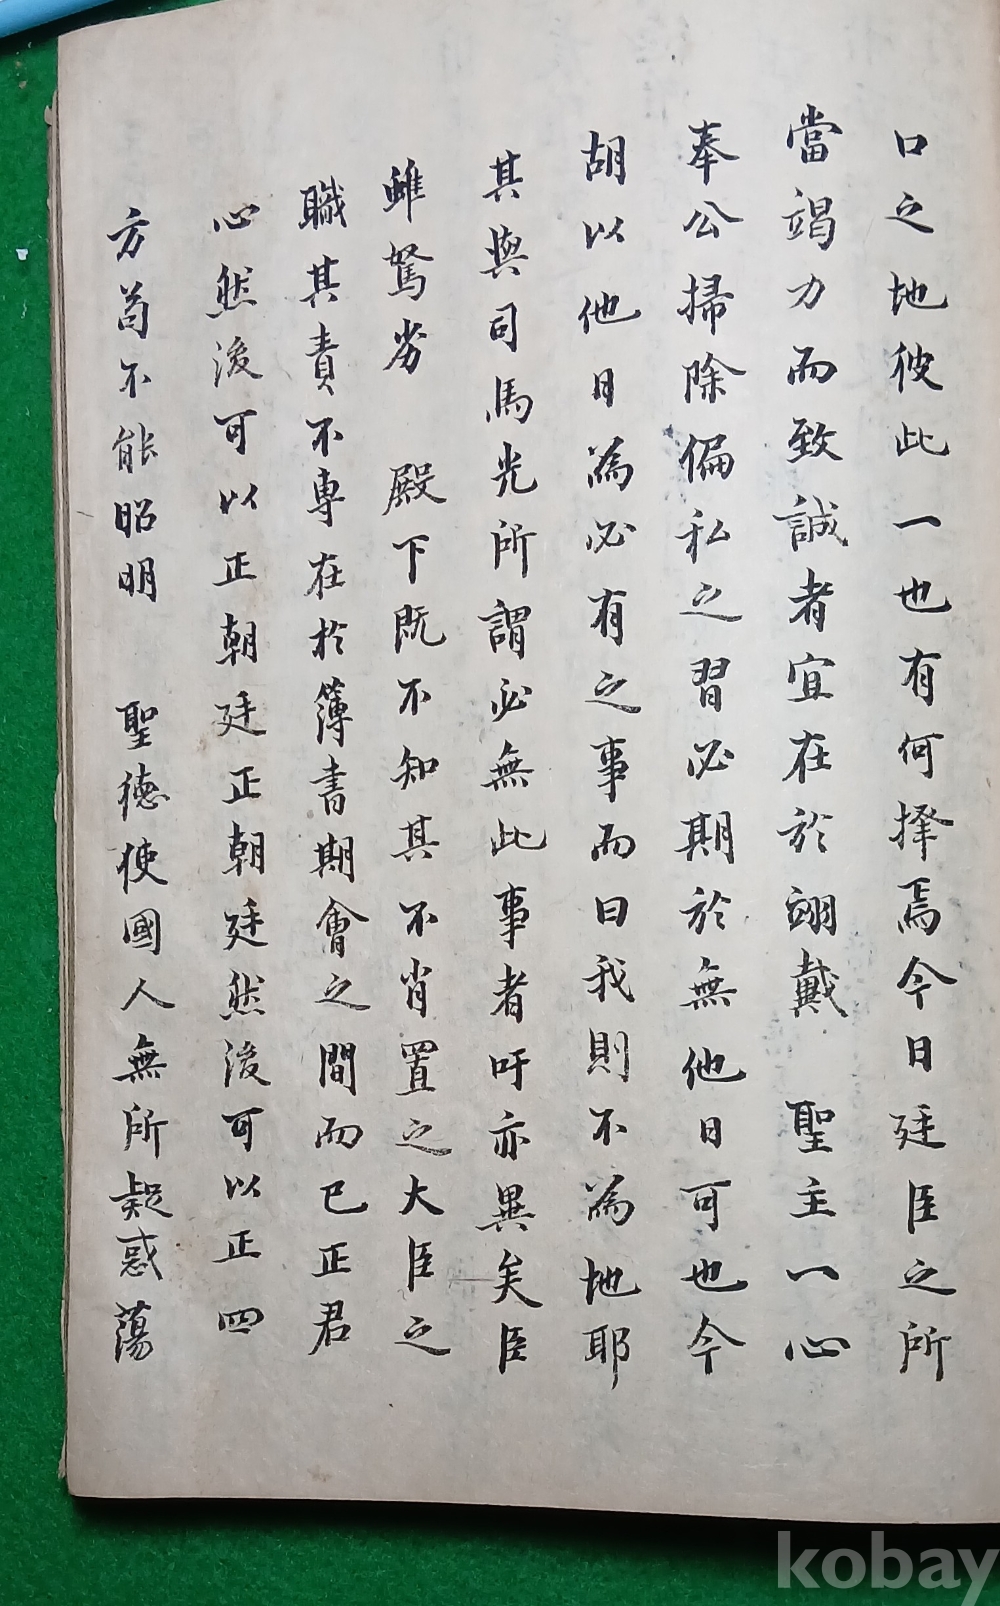 口之地彼此一也有何擇焉今日廷臣之所
當竭力而致誠者宜在於翊戴 聖主一心
奉公掃除偏私之習必期於無他日可也今
胡以他日為必有之事而曰我則不為地耶
其與司馬光所謂必無此事者吁亦異矣臣
雖駑劣 殿下旣不知其不肖置之大臣之
職其責不專在於簿書期會之間而已正君
心然後可以正朝廷正朝廷然後可以正四
方苟不能昭明 聖德使國人無所疑惑蕩
kobay